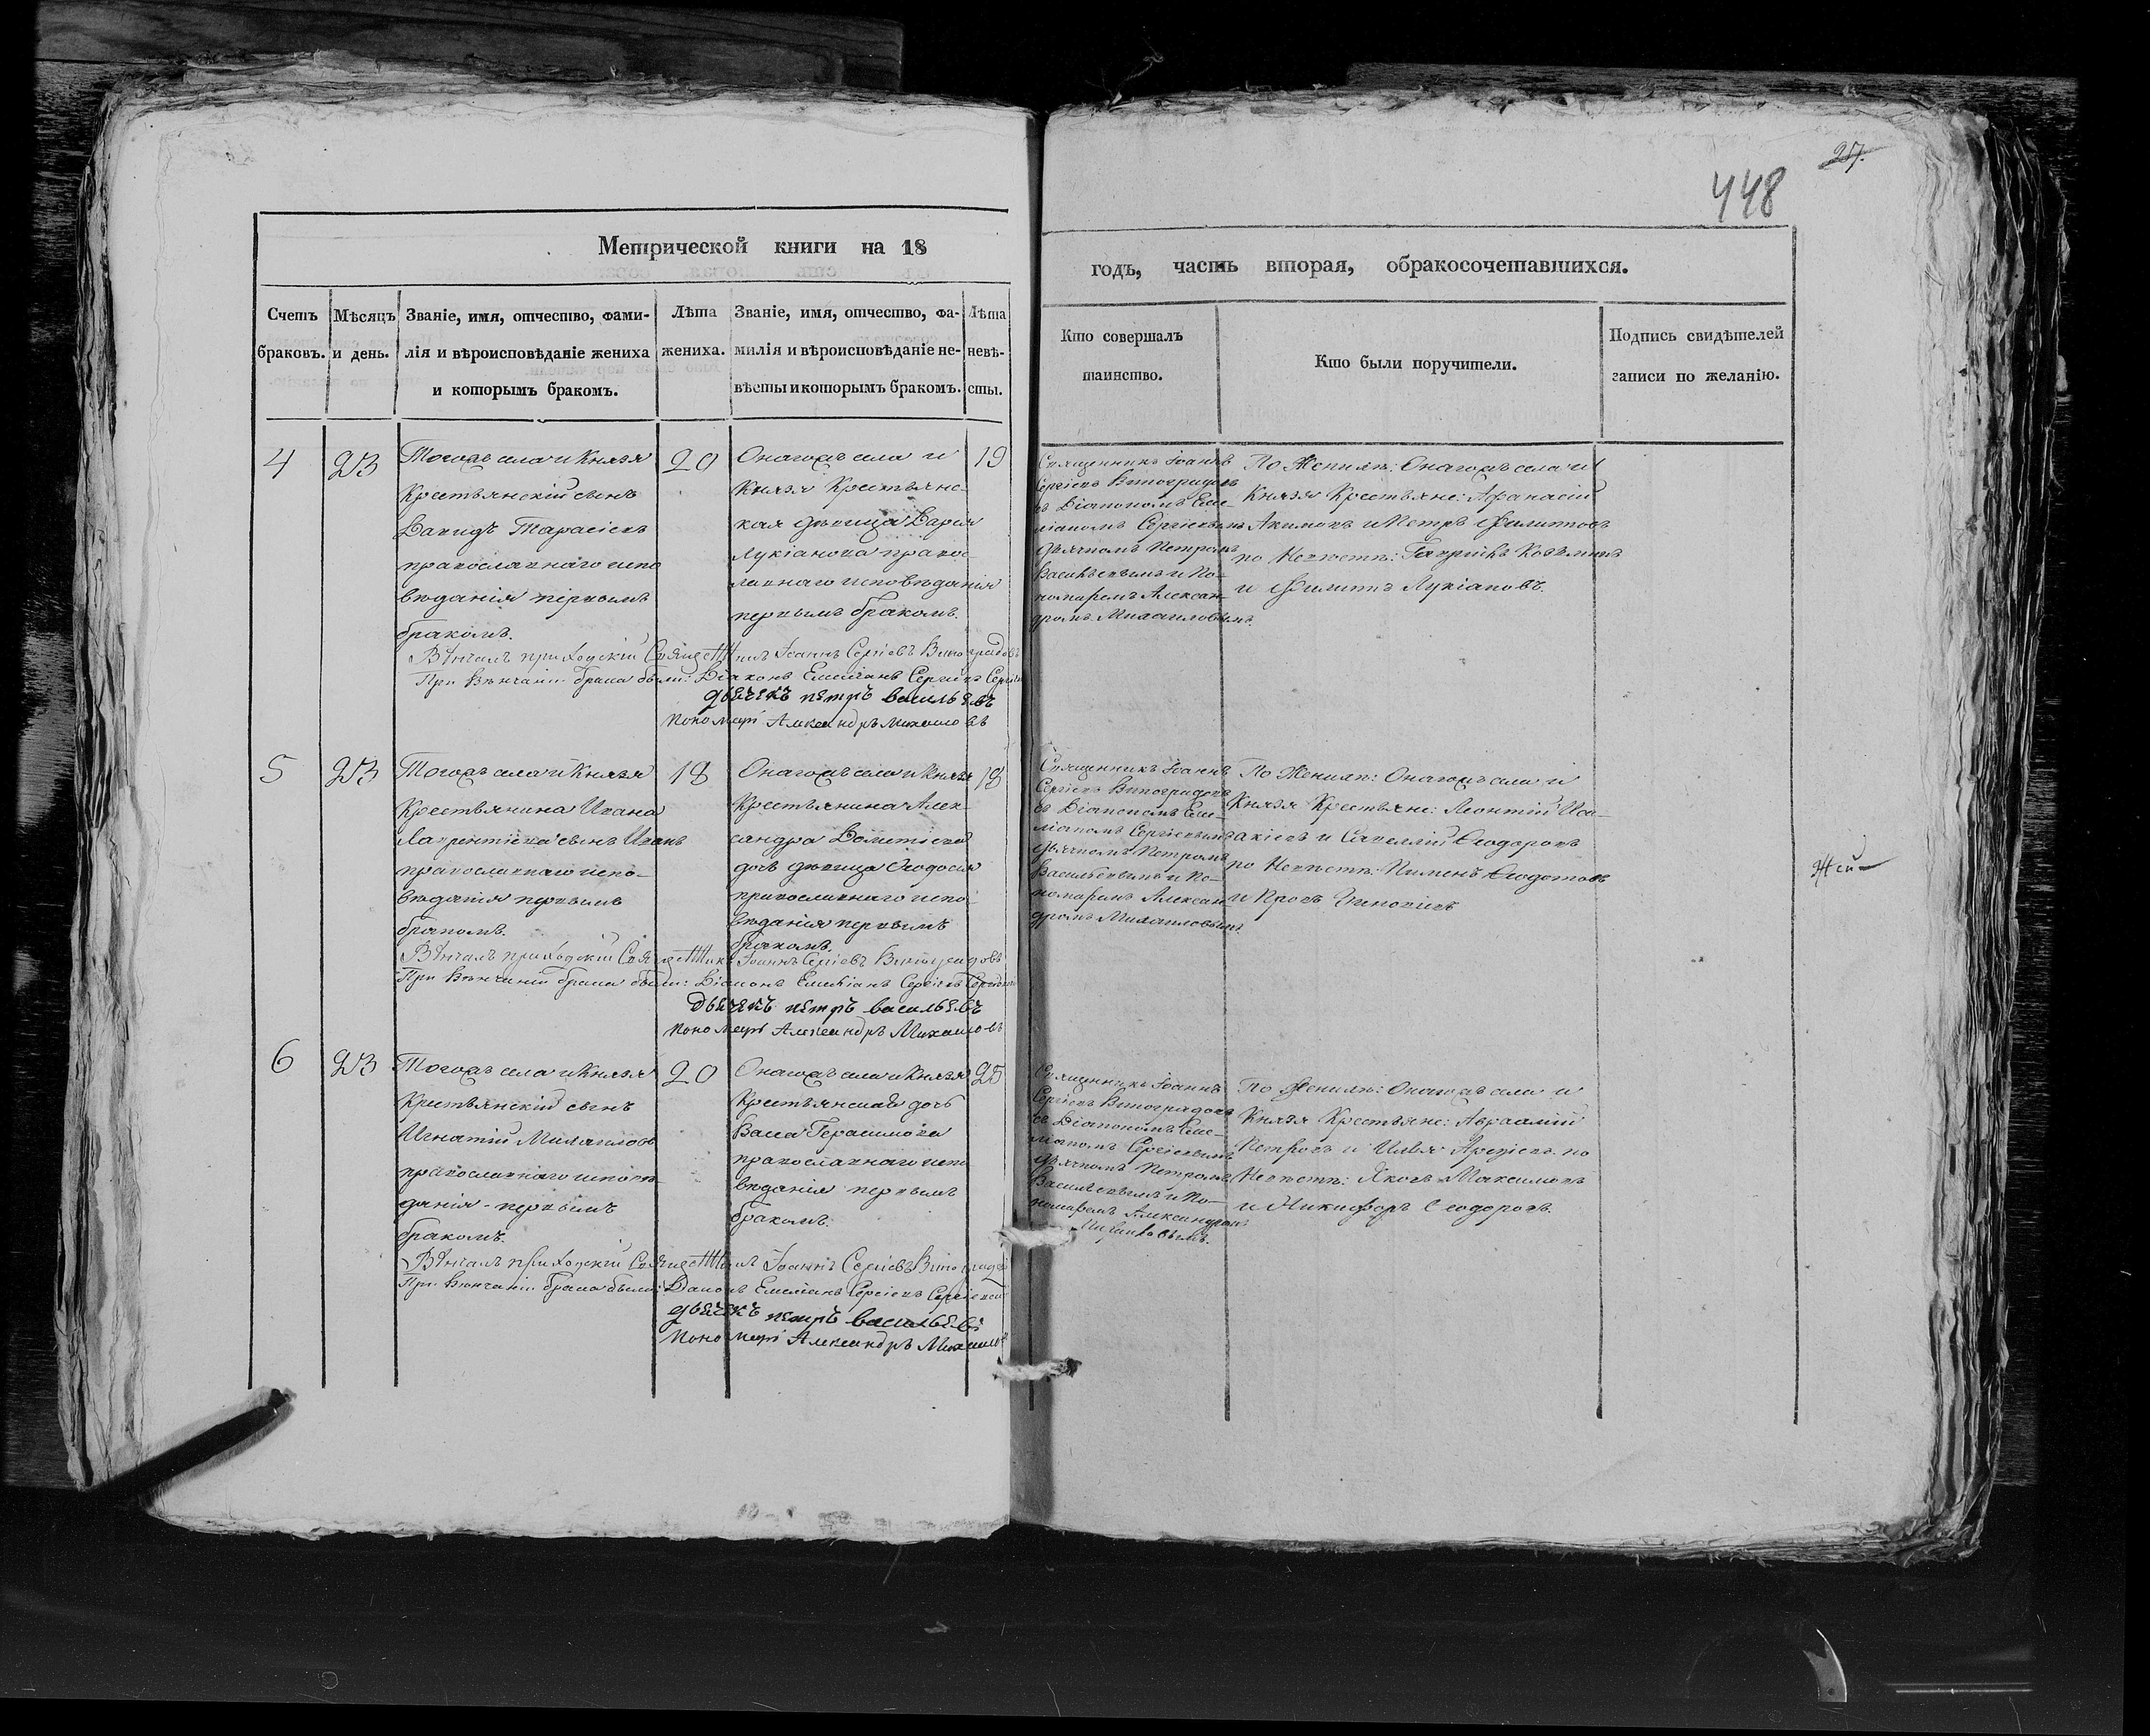 27.
448
Метрической книги на 18
годъ, часть вторая, обракосочетавшихся.
Счетъ браковъ.
Мѣсяцъ и день.
Званіе, имя, отчество, фами-
лія и вѣроисповѣданіе жениха
и которымъ бракомъ.
Лѣта
жениха.
Званіе, имя, отчество, фа-
милія и вѣроисповѣданіе не-
вѣсты и которымъ бракомъ.
Лѣта
невѣ-
сты.
Кто совершалъ
таинство.
Кто были поручители.
Подпись свидѣтелей
записи по желанію.
4
23
Тогожъ села и Князя
Крестьянскій сынъ
Давидъ Тарасіевъ
православнаго испо
вѣданія первымъ
бракомъ.
20
Онагожъ села и
Князя Крестьянс-
кая дѣвица Дарья
Лукіанова право-
лавнаго исповѣданія
первымъ бракомъ.
19
Священникъ Іоаннъ
Сергіевъ Виноградовъ
съ Діакономъ Еме-
ліаномъ Сергіевымъ
дьячкомъ Петромъ
Васильевымъ и По-
номаремъ Алексан-
дромъ Михаиловымъ.
По Женихѣ: Онагожъ села и
Князя Крестьяне: Афанасій
Акимовъ и Петръ Филиповъ
по Невѣстѣ: Гавріилъ Козминъ
и Филипъ Лукіановъ.
Вѣнчалъ приходскій Священникъ Іоаннъ Сергіевъ Виноградовъ
При Вѣнчаніи брака были: Діаконъ Емеліанъ Сергіевъ
дьячекъ петръ васильевъ
Пономарь Александръ Михаиловъ
5
23
Тогожъ села и Князя
Крестьянина Ивана
Лаврентіева сынъ Иванъ
православнаго испо-
вѣданія первымъ
бракомъ.
18
Онагожъ села и Князя
Крестьянина Алек-
сандра Дометіева
дочь дѣвица Феодосія
православнаго испо
вѣданія первымъ
бракомъ.
18
Священникъ Іоаннъ
Сергіевъ Виноградовъ
съ Діакономъ Еме-
ліаномъ Сергіевымъ
дьячкомъ Петромъ
Васильевымъ и По-
номаремъ Алексан-
дромъ Михаиловымъ.
По Женихѣ: Онагожъ села и
Князя Крестьяне: Леонтій Иса-
акіевъ и Савеллій Феодоровъ
по Невѣстѣ: Пименъ Феодотовъ
и Провъ
Вѣнчалъ приходскій Священникъ Іоаннъ Сергіевъ Виноградовъ
При Вѣнчаніи брака были: Діаконъ Емеліанъ Сергіевъ
Дьячекъ петръ васильевъ
Пономарь Александръ Михаиловъ
6
23
Тогожъ села и Князя
Крестьянскій сынъ
Игнатій Михаиловъ
православнаго исповѣ
данія первымъ
бракомъ.
20
Онагожъ села и Князя
Крестьянская дочь
Васса Герасимова
православнаго испо
вѣданія первымъ
бракомъ.
25
Священникъ Іоаннъ
Сергіевъ Виноградовъ
съ Діакономъ Еме-
ліаномъ Сергіевымъ
дьячкомъ Петромъ
Васильевымъ и По-
номаремъ Александромъ
Михаиловымъ.
По Женихѣ: Онагожъ села и
Князя Крестьяне: Авраамій
Петровъ и Илья Арефіевъ по
Невѣстѣ: Яковъ Максимовъ
и Никифоръ Феодоровъ.
Вѣнчалъ приходскій Священникъ Іоаннъ Сергіевъ Виноградовъ
При Вѣнчаніи брака были: Діаконъ Емеліанъ Сергіевъ
дьячекъ петръ васильевъ
Пономарь Александръ Михаиловъ